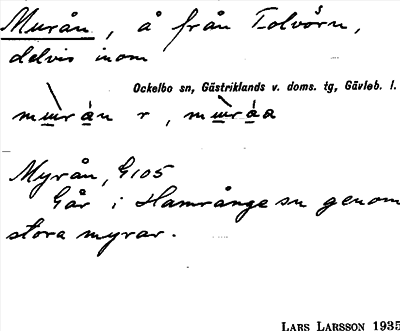 Murån, å från Tolvörn,
delvis inom
Ockelbo sn, Gästriklands v. doms. tg, Gävleb. l.
Myrån, G105
Går i Hamrånge sn genom
stora myrar.
LARS LARSSON 1935